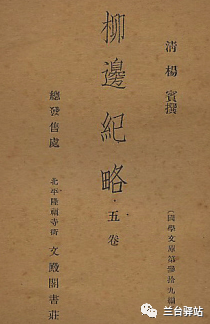 清楊賓撰
柳邊紀略·五卷
(國學文庫第拾九編
總發售處
北平隆福寺街文殿閣書莊
兰台驿站